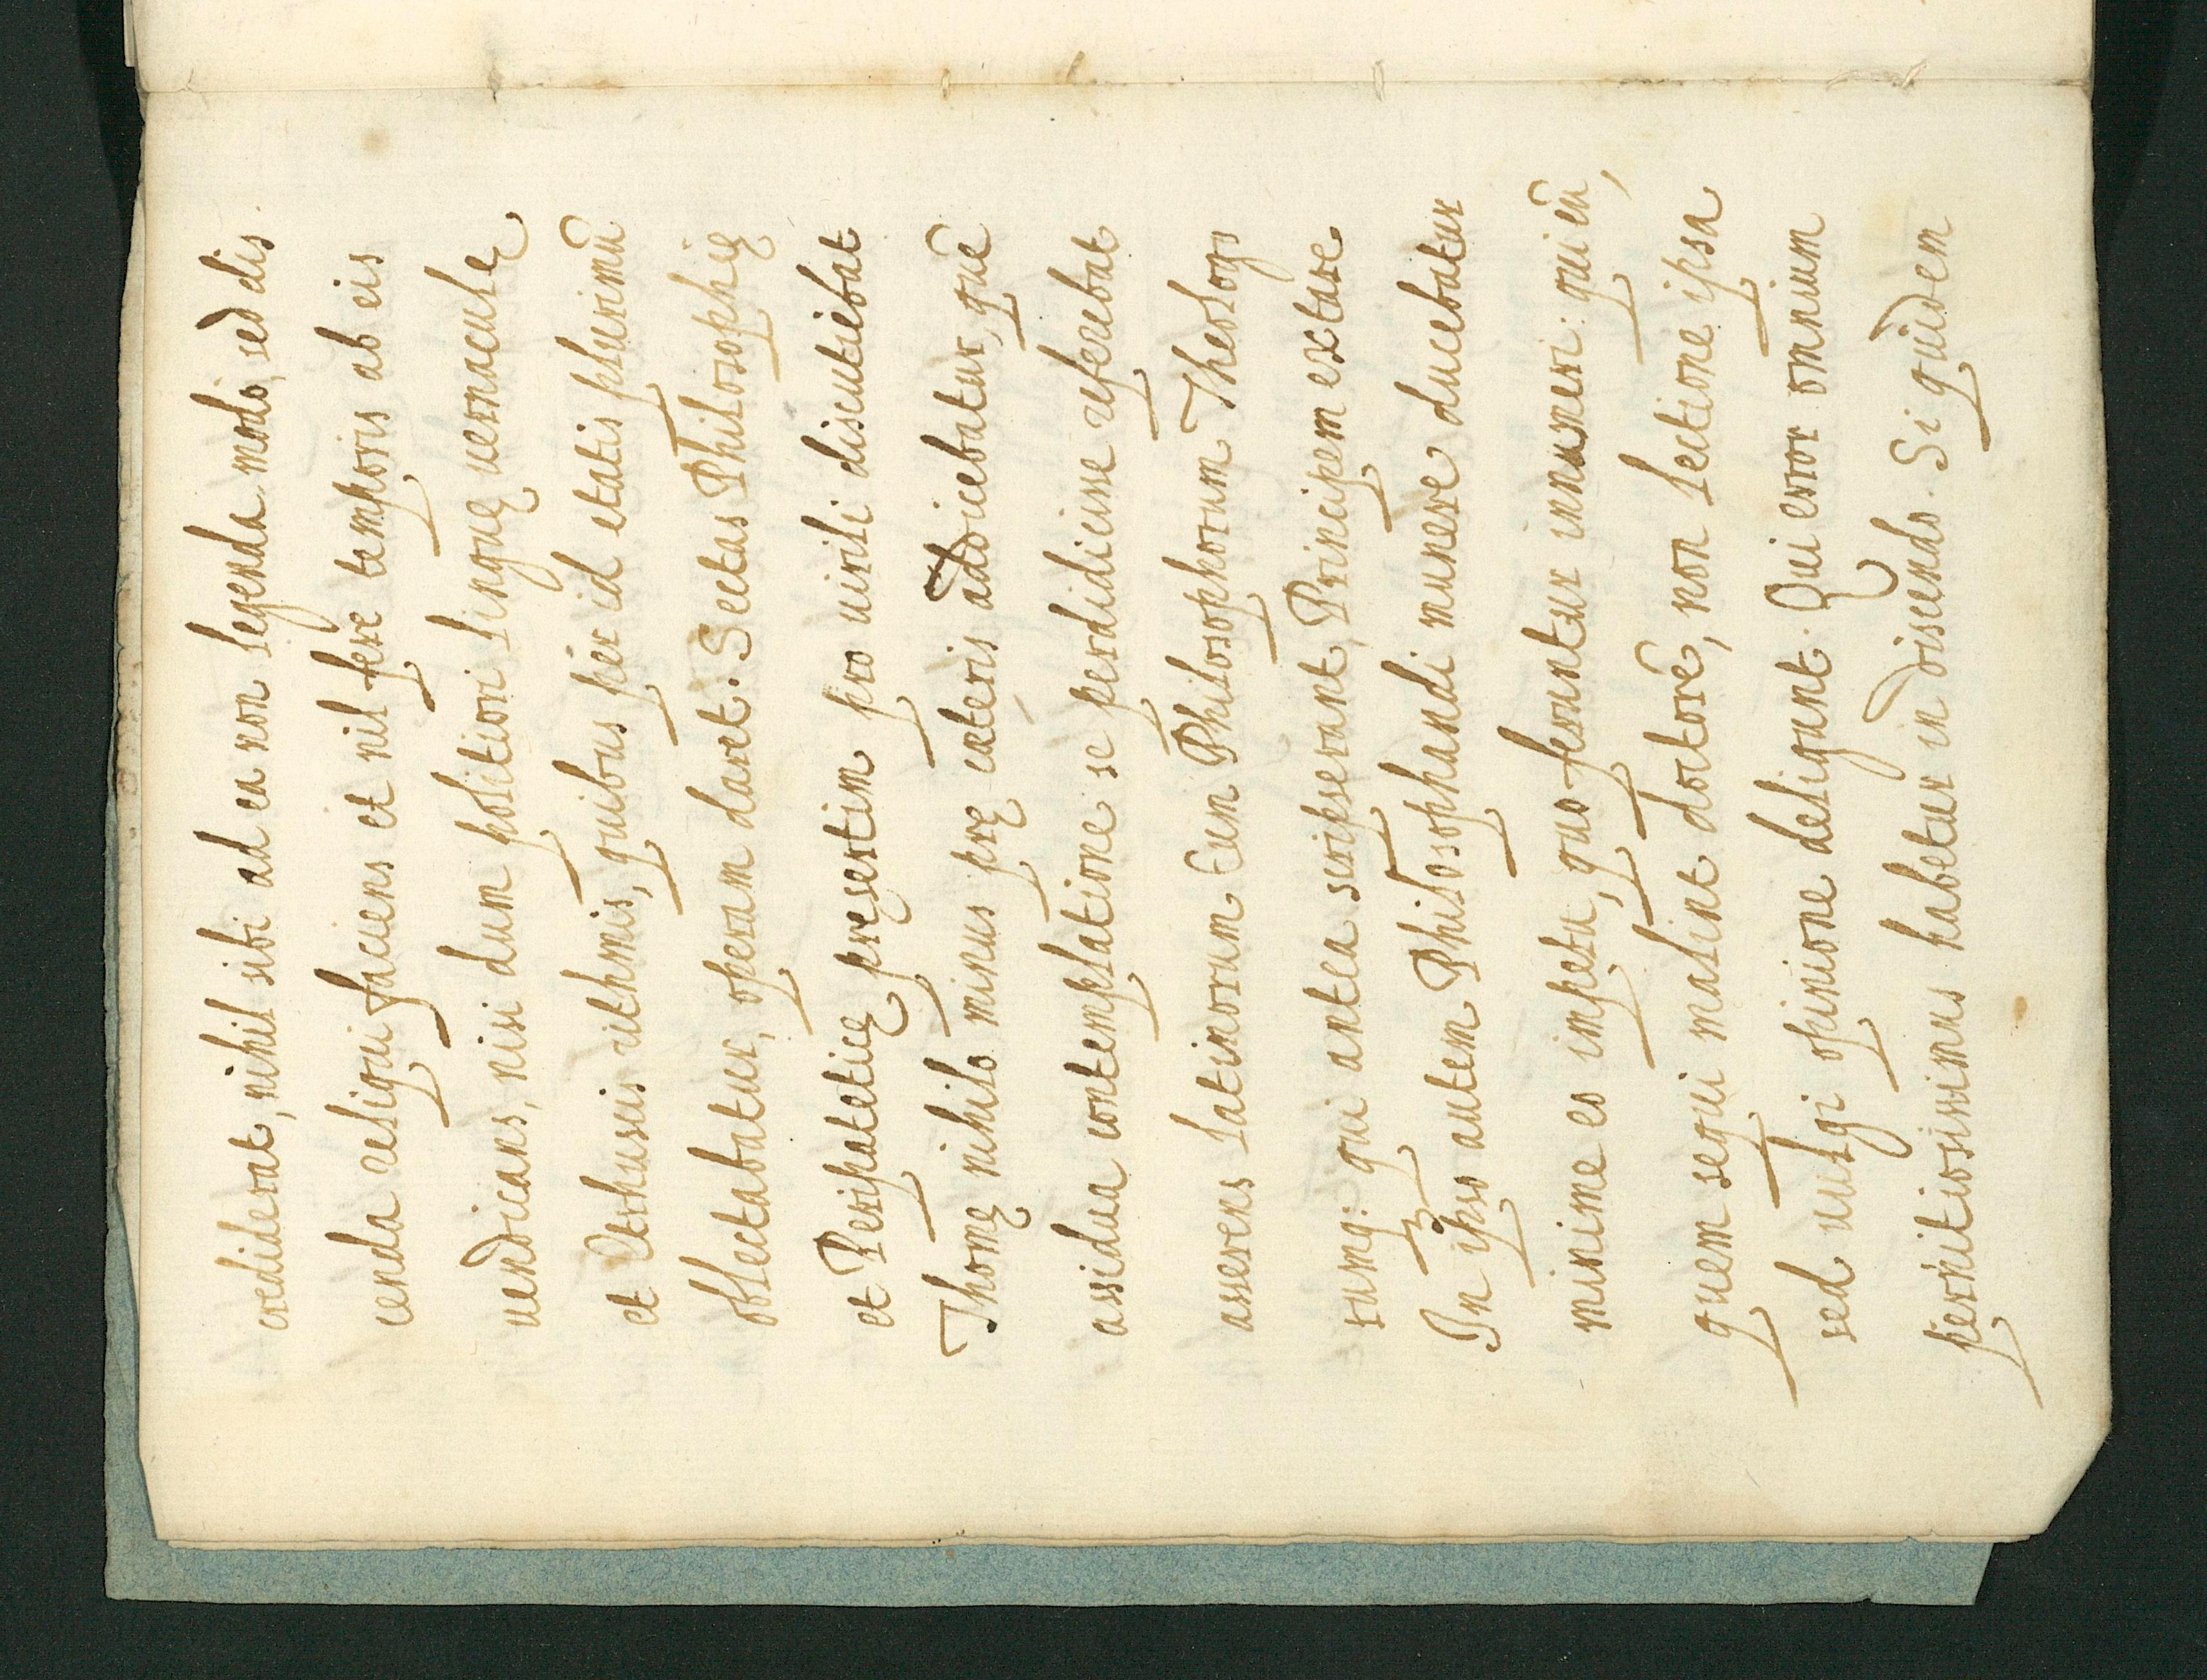 crediderat, nihil sibi ad ea non legenda modo, sed dis
cenda reliqui faciens et nil fere temporis ab eis
uendicans, nisi dum politiori linguę uernaculę
et Ethruscis rithmis, quibus per id etatis plurimū
oblectabatur, operam daret. Sectas Philosophię
et Peripateticę pręsertim pro uirili discutiebat
Thomę nihilo minus prę cæteris addicebatur, quē
assidua contemplatione se perdidicine referebat
asserens latinorum Eum Philosophorum Theologo
rumq: qui antea scripserant, Principem extare
In ipso autem Philosophandi munere ducebatur
minime eo impetu, quo feruntur innumeri: qui eū,
quem sequi malint doctorē, non lectione ipsa
sed uulgi opinione deligunt. Qui error omnium
pernitiosissimus habetur in discendo. Si quidem